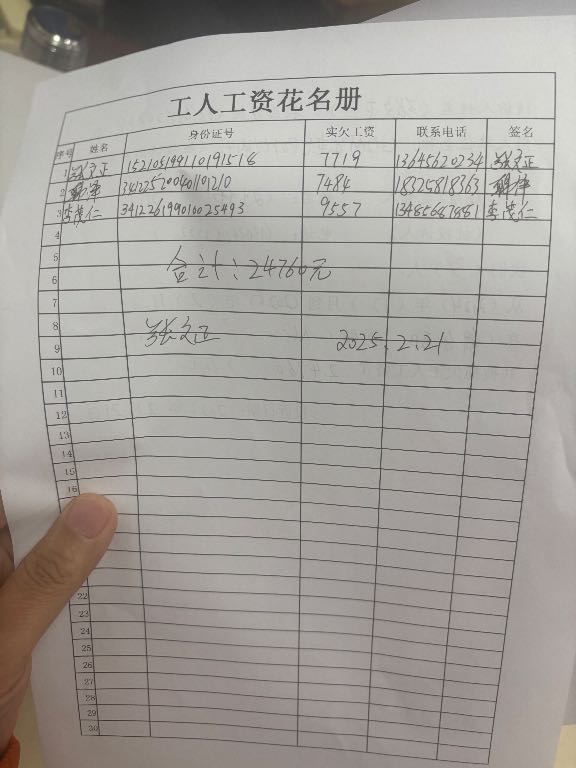 工人工资花名册
序号 姓名 身份证号 实欠工资 联系电话 签名
1 张文正 152105199110191516 7719 13645620234 张文正
2 341225200401101210 7484 18325818363
3 李茂仁 341226199010025493 9557 13485687881 李茂仁
4
5
合计:24760元
6
7
8
张文正 2025.2.21
9
10
11
12
13
14
15
16
22
23
24
25
26
27
28
29
30